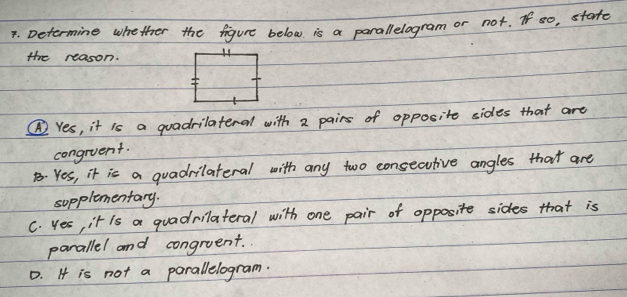 7. Determine whether the figure below is a parallelogram or not. If so, state
the reason.
A Yes, it is a quadrilateral with 2 pairs of opposite sides that are
congruent.
B. Yes, it is a quadrilateral with any two consecutive angles that are
supplementary.
C. Yes, it is a quadrilateral with one pair of opposite sides that is
parallel and congruent..
D. It is not a parallelogram.